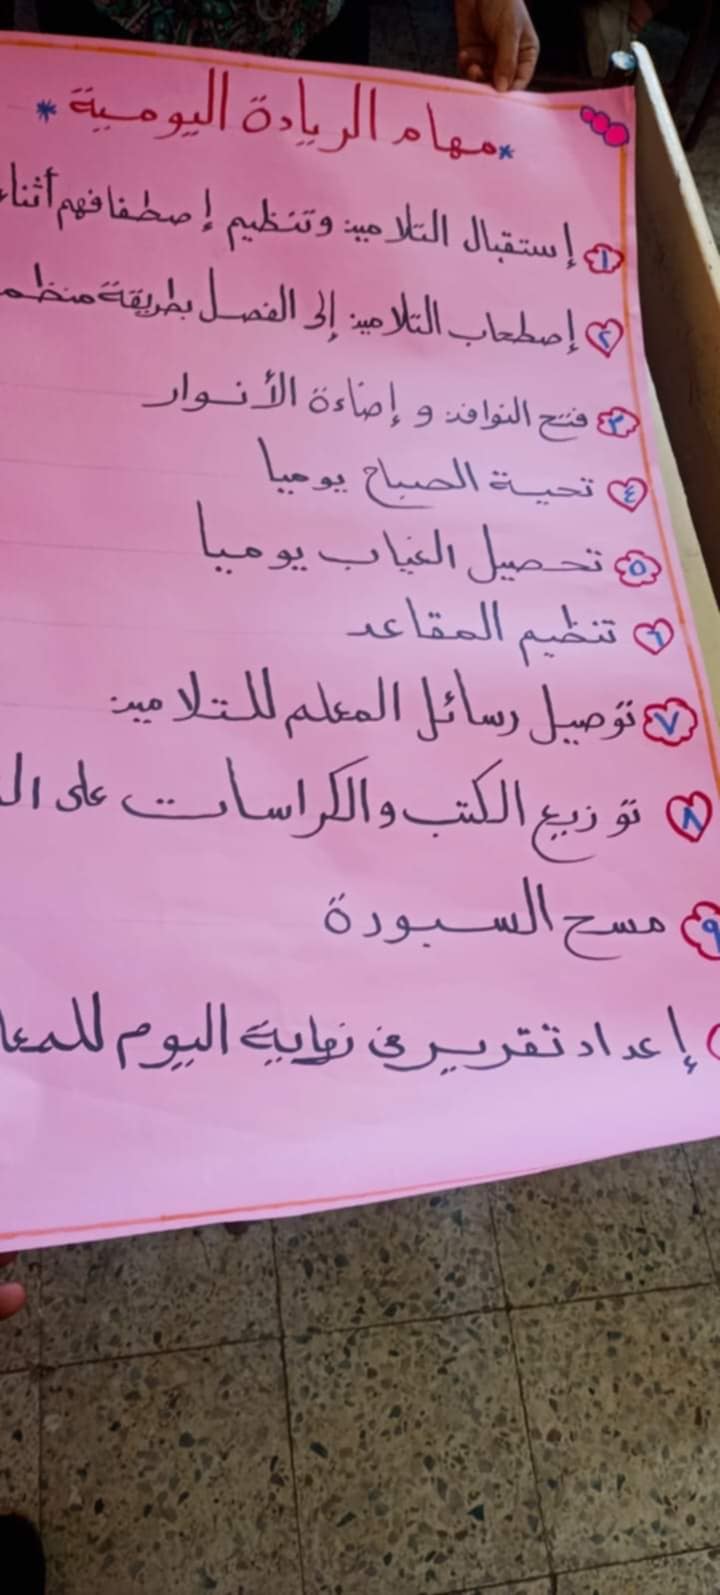 * مهام الريادة اليومية *
١ إستقبال التلاميذ وتنظيم إصطفافهم أثناء
٢ إصطحاب التلاميذ إلى الفصل بطريقة
٣ فتح النوافذ و إضاءة الأنوار
٤ تحية الصباح يوميا
٥ تحصيل الغياب يوميا
٦ تنظيم المقاعد
٧ توصيل رسائل المعلم للتلاميذ
٨ توزيع الكتب والكراسات على
٩ مسح السبورة
إعداد تقرير في نهاية اليوم